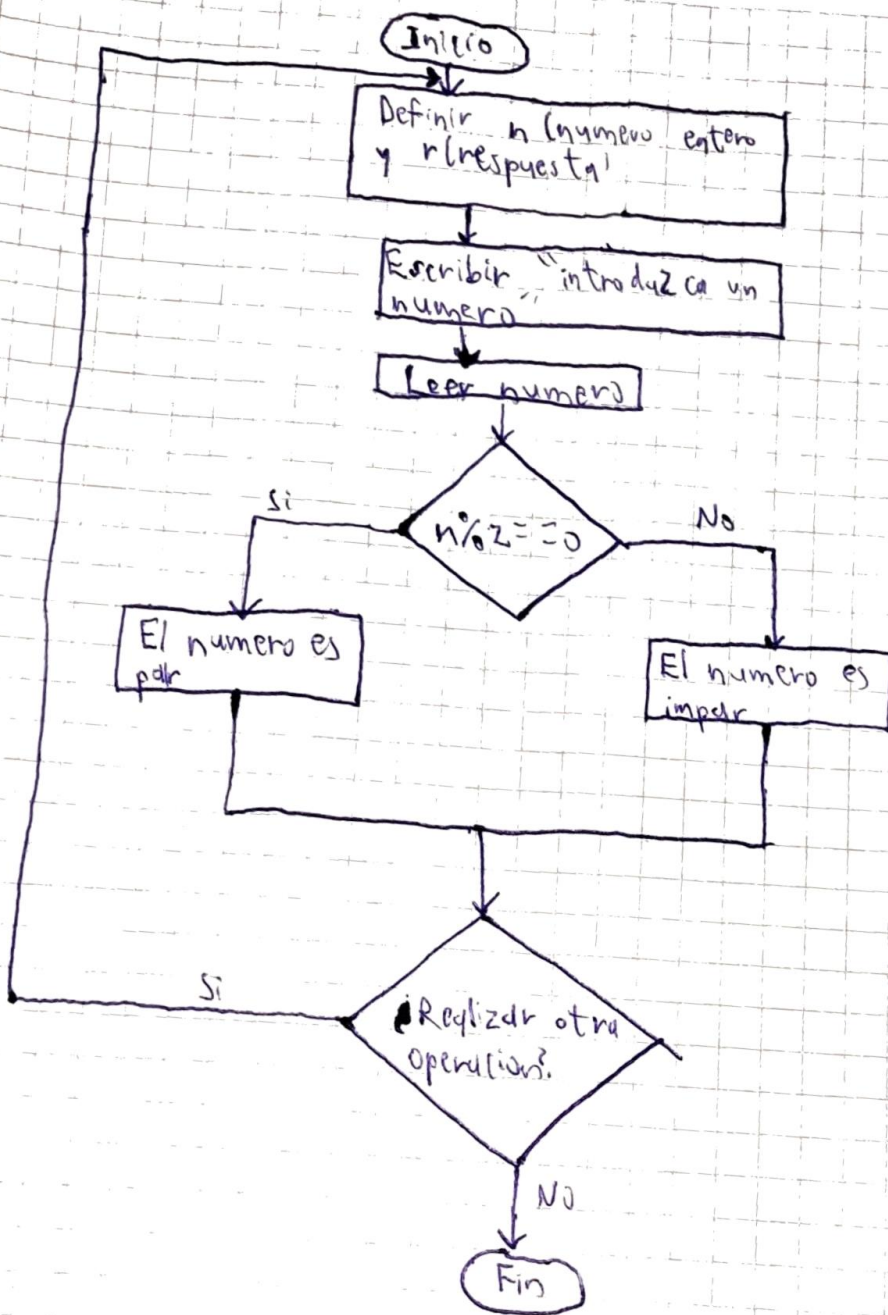 Inicio
Definir n (numero entero
y r(respuesta)
Escribir "introduzca un
numero"
Leer numero
n%2==0
Si
No
El numero es
par
El numero es
impar
¿Realizar otra
operacion?
Si
No
Fin